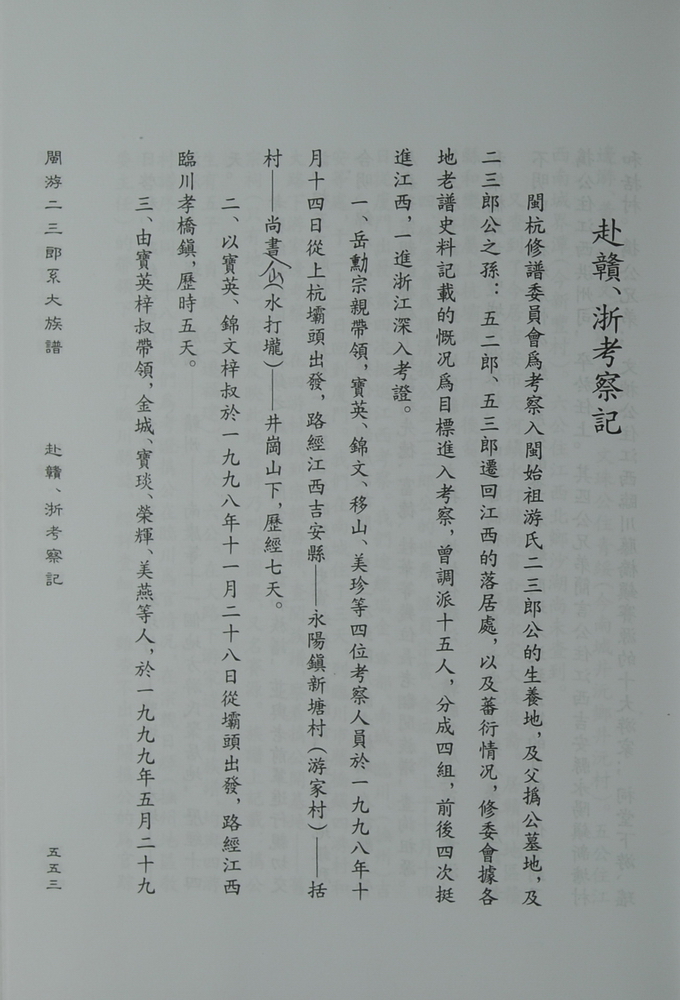 赴贛、浙考察記
閩杭修譜委員會爲考察入閩始祖游氏二三郎公的生養地，及父撝公墓地，及
二三郎公之孫：五二郎、五三郎遷回江西的落居處，以及蕃衍情況，修委會據各
地老譜史料記載的慨況爲目標進入考察，曾調派十五人，分成四組，前後四次挺
進江西，一進浙江深入考證。
一、岳勳宗親帶領，寶英、錦文、移山、美珍等四位考察人員於一九九八年十
月十四日從上杭壩頭出發，路經江西吉安縣——永陽鎮新塘村（游家村）——括
村——尚書山（水打壠）——井崗山下，歷經七天。
二、以寶英、錦文梓叔於一九九八年十一月二十八日從壩頭出發，路經江西
臨川孝橋鎮，歷時五天。
三、由寶英梓叔帶領，金城、寶琰、榮輝、美燕等人，於一九九九年五月二十九
閩游二三郎系大族譜
赴贛、浙考察記
五五三